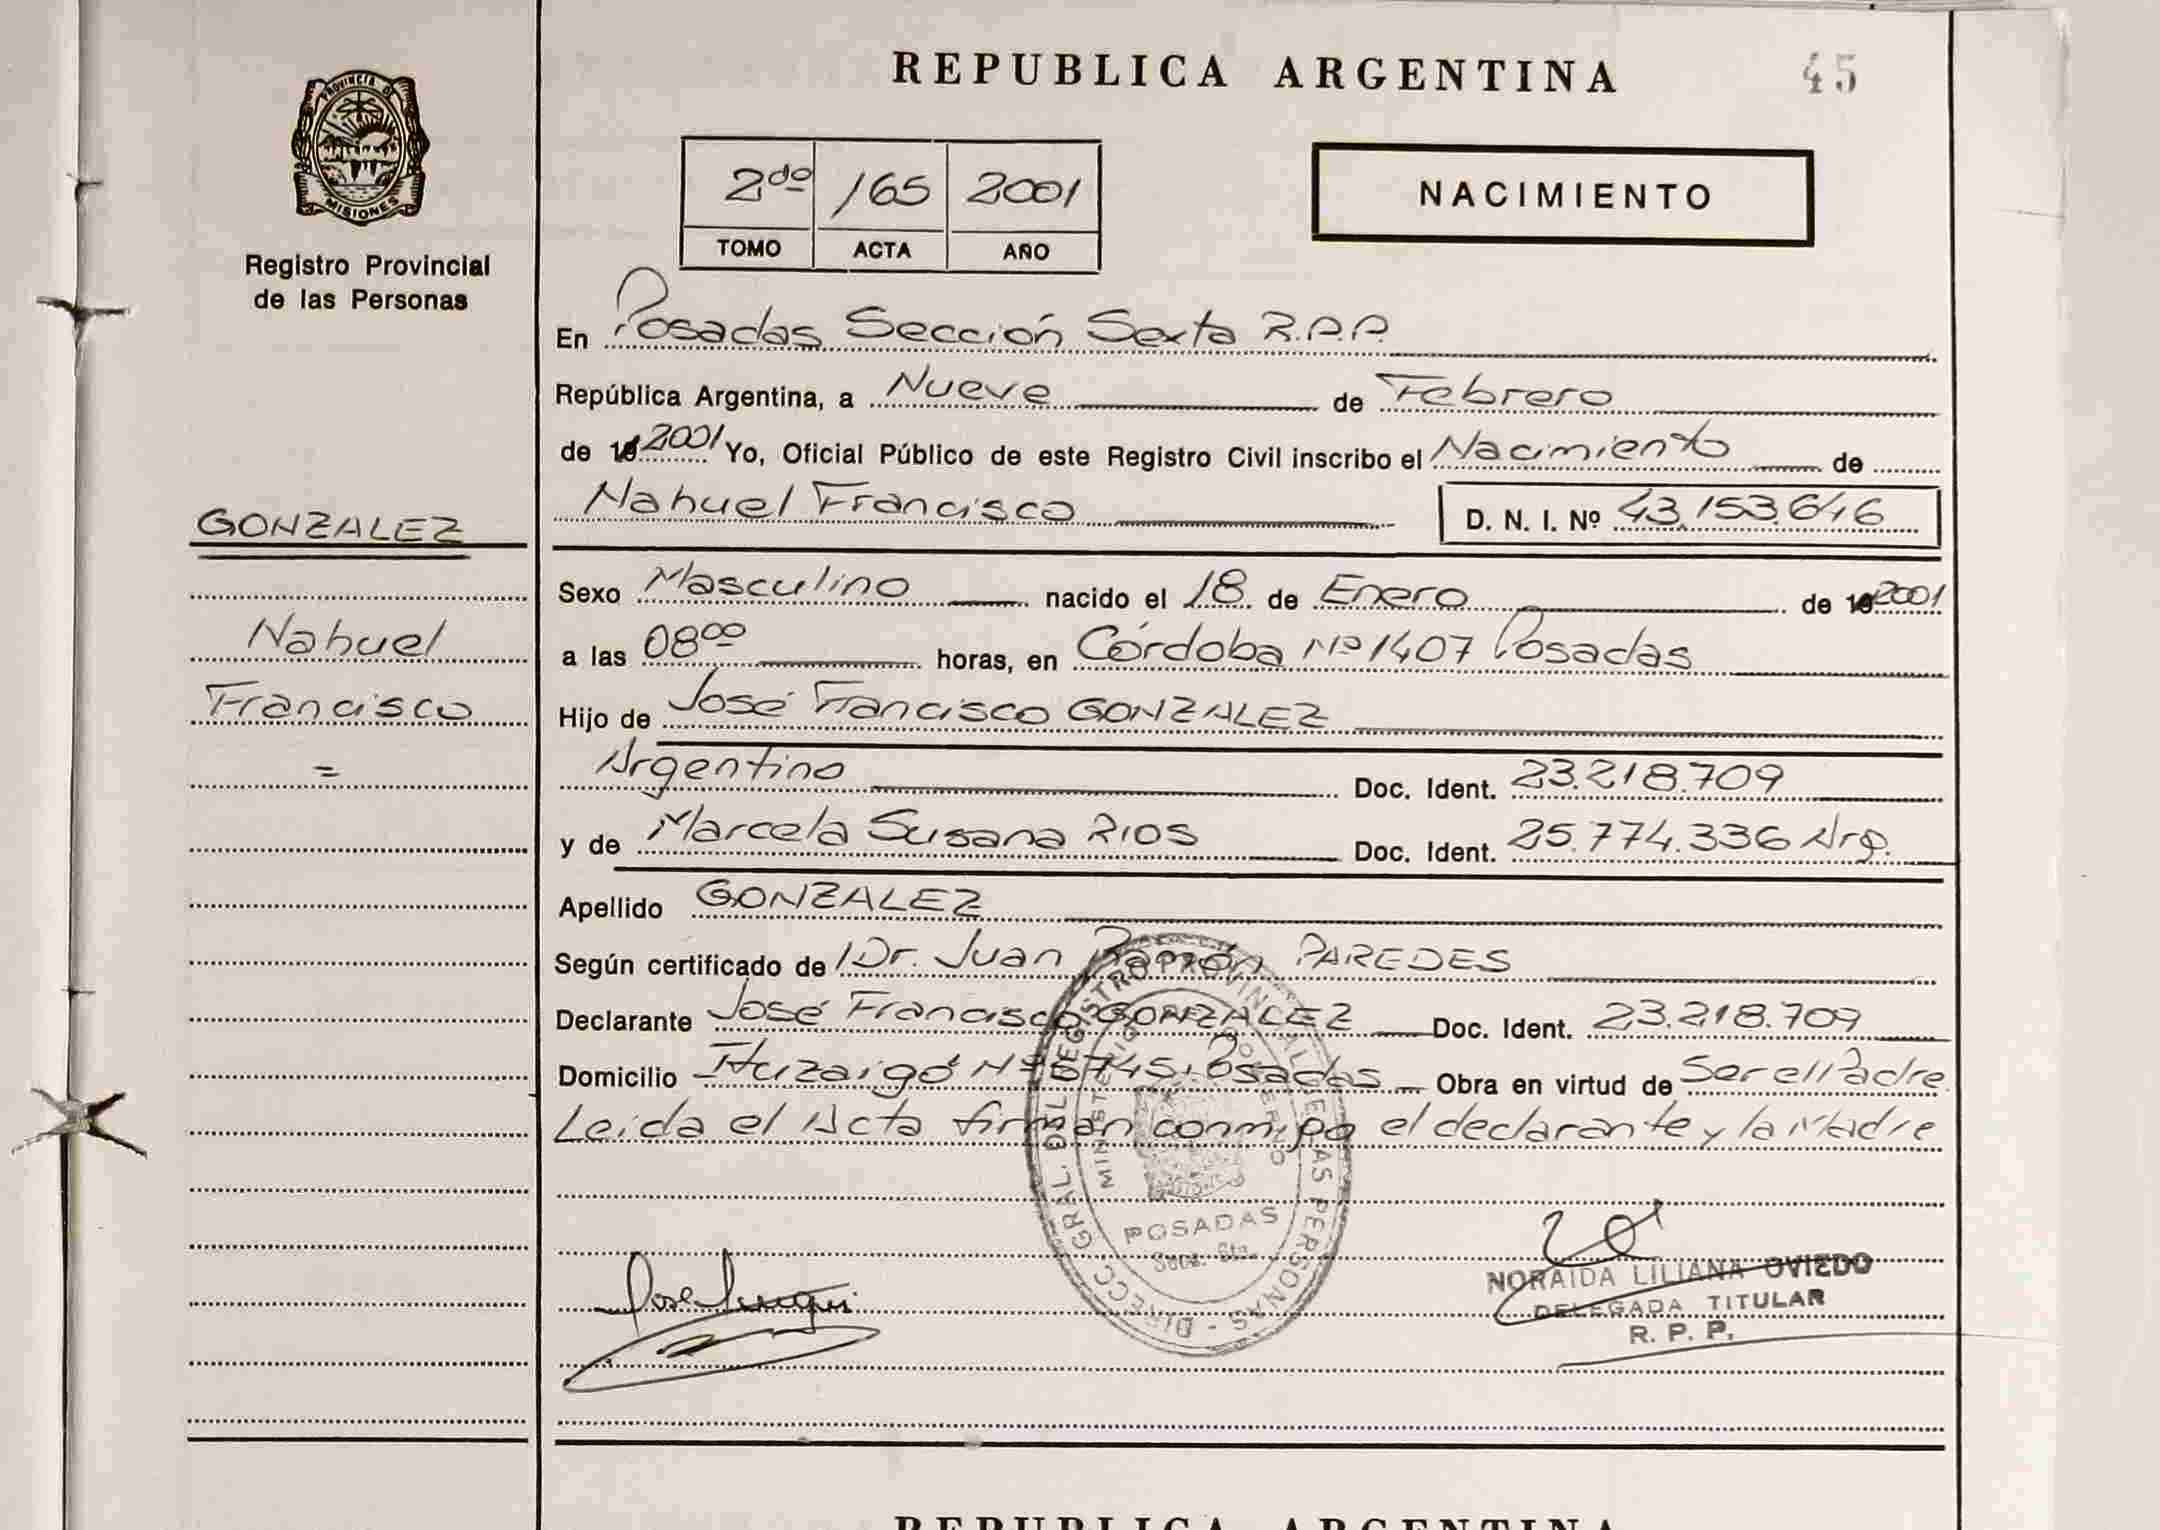 REPUBLICA ARGENTINA
45
PROVINCIA DE
MISIONES
Registro Provincial
de las Personas
2do 165 2001
TOMO ACTA AÑO
NACIMIENTO
En Posadas Sección Sexta R.P.P.
República Argentina, a Nueve de Febrero
de 2001 Yo, Oficial Público de este Registro Civil inscribo el Nacimiento de
Nahuel Francisco D. N. I. Nº 43.153.646
GONZALEZ
Nahuel
Francisco
=
Sexo Masculino nacido el 18 de Enero de 2001
a las 08 00 horas, en Córdoba Nº 1407 Posadas
Hijo de José Francisco GONZALEZ
Argentino Doc. Ident. 23.218.709
y de Marcela Susana RIOS Doc. Ident. 25.774.336 Arg.
Apellido GONZALEZ
Según certificado de Dr. Juan Ramón PAREDES
Declarante José Francisco GONZALEZ Doc. Ident. 23.218.709
Domicilio Nº 5745. Posadas Obra en virtud de Ser el Padre
Leida el Acta firman conmigo el declarante y la Madre
DIRECC. GRAL. DEL REGISTRO PROVINCIAL DE LAS PERSONAS
MINISTERIO DE GOBIERNO
POSADAS
Secc. 6ta.
NORAIDA LILIANA OVIEDO
DELEGADA TITULAR
R. P. P.
REPUBLICA ARGENTINA